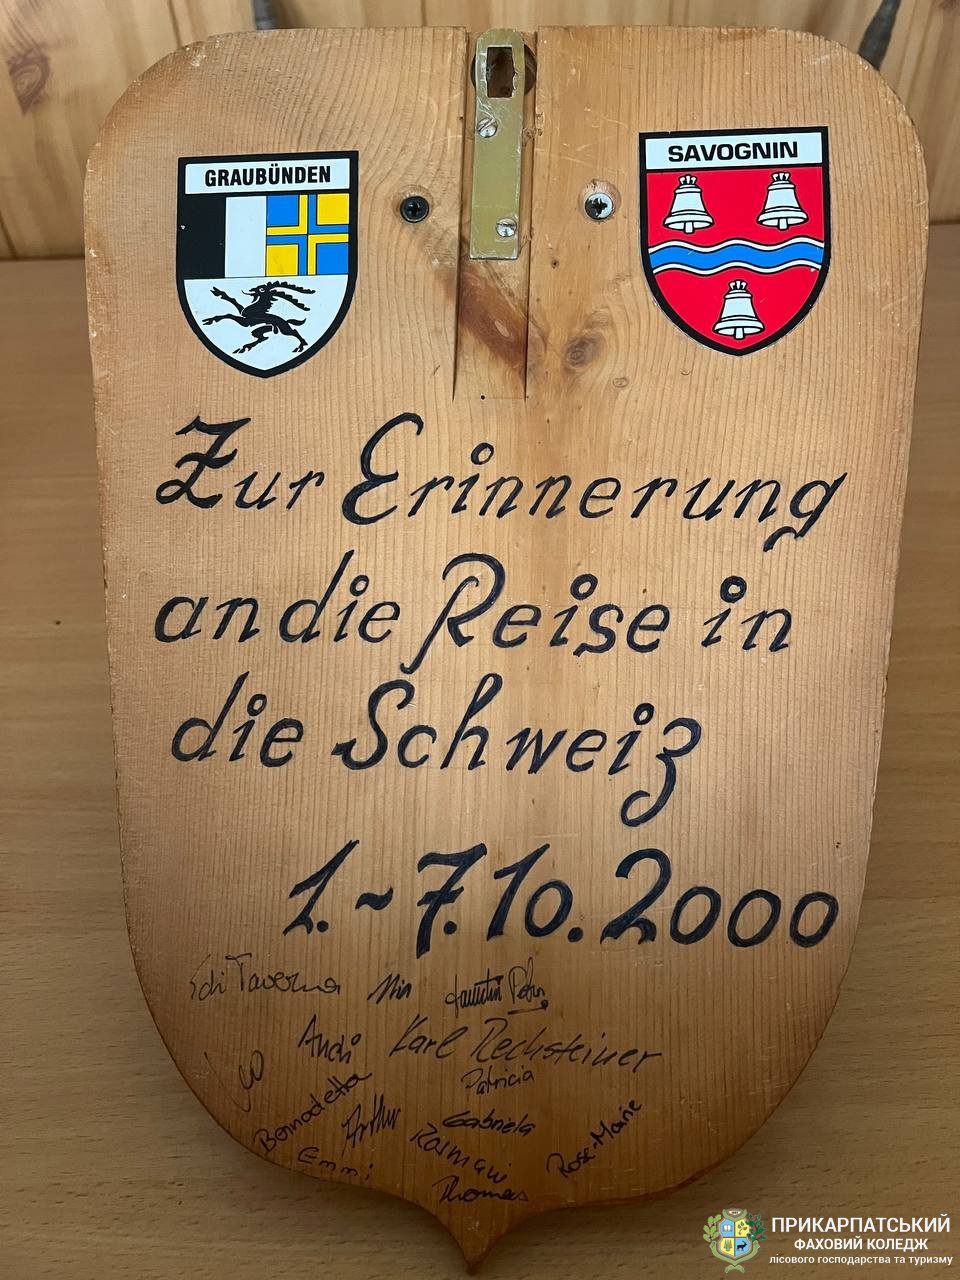 GRAUBÜNDEN
SAVOGNIN
Zur Erinnerung
an die Reise in
die Schweiz
1.-7.10.2000
Taverna
Andi Karl Rechsteiner
Patricia
Bernadetta Arthur Gabriela
Rosmarie Rose-Marie
Emmi
Thomas
ПРИКАРПАТСЬКИЙ
ФАХОВИЙ КОЛЕДЖ
лісового господарства та туризму